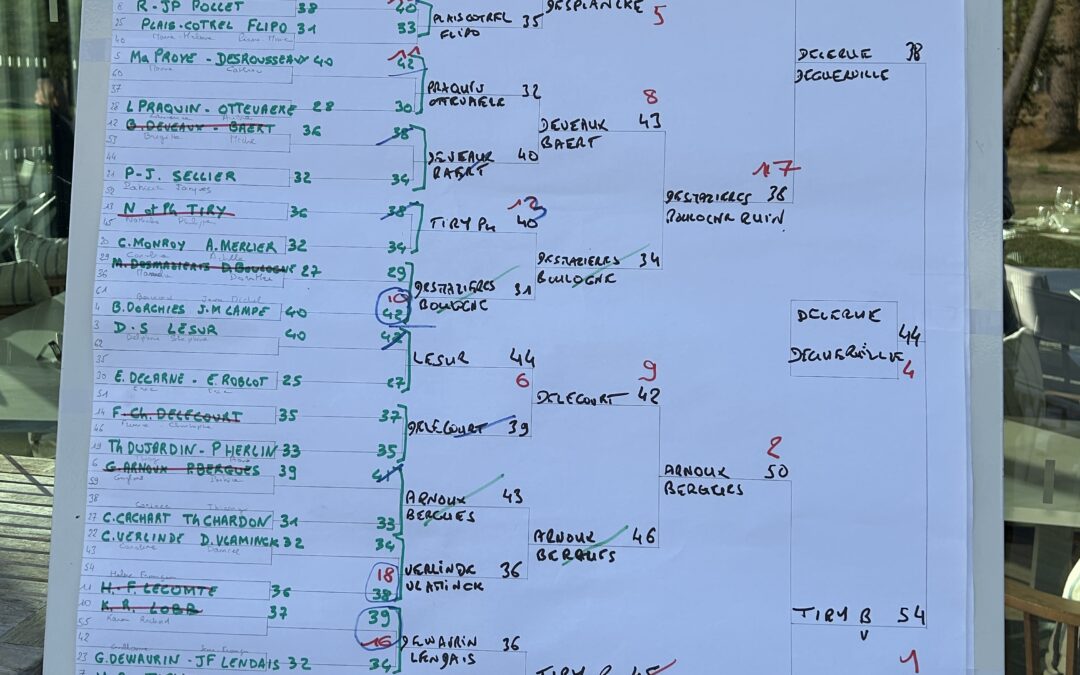 8 R-JP POLLET 38
25 PLAIS-COTREL FLIPO 31
40
5 Ma PROYE - DESROUSSEAUX 40
60
37
28 L PRAQUIN - OTTEVAERE 28
12 G. DEVEAUX - BAERT 36
53
44
21 P-J. SELLIER 32
52
13 N et Ph TIRY 36
45
20 C. MONROY A. MERLIER 32
29 M. DESMAZIERES D. BOULOGNE 27
36
61
4 B. DORCHIES J.M CAMPE 40
3 D.S LESUR 40
62
35
30 E. DECARNE - E. ROBLOT 25
14 F-Ch. DELECOURT 35
46
19 Th DUJARDIN - P HERLIN 33
6 G. ARNOUX P. BERGUES 39
59
38
27 C. CACHART Th CHARDON 31
22 C. VERLINDE D. VLAMINCK 32
43
54
11 H-F LECOMTE 36
10 K.R. LOBR 37
55
42
23 G. DEWAURIN - JF LENDAIS 32
40
33
11
42
30
38
34
38
34
29
10
42
42
27
37
35
41
33
34
18
38
39
16
34
PLAIS COTREL 35
FLIPO
PRAQUIN 32
OTTEVAERE
DEVEAUX 40
BAERT
12
TIRY Ph 40
DESTAZIERES 31
BOULOGNE
LESUR 44
6
DELECOURT 39
ARNOUX 43
BERGUES
VERLINDE 36
VLAMINCK
DEWAURIN 36
LENDAIS
DESPLANCKE 5
8
DEVEAUX 43
BAERT
DESTAZIERES 34
BOULOGNE
9
DELECOURT 42
ARNOUX 46
BERGUES
TIRY B 45
17
DESTAZIERES 38
BOULOGNE RUIN
2
ARNOUX 50
BERGUES
DELERUE 38
DEGUERVILLE
DELERUE
44
DEGUERVILLE
4
TIRY B 54
V
1